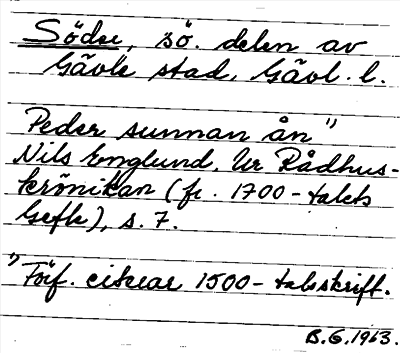 Söder, sö. delen av
Gävle stad, Gävl. l.
Peder sunnan ån"
Nils Englund, Ur Rådhus-
krönikan (fr. 1700-talets
Gefle), s. 7.
" Förf. citerar 1500-talsskrift.
B.G. 1963.